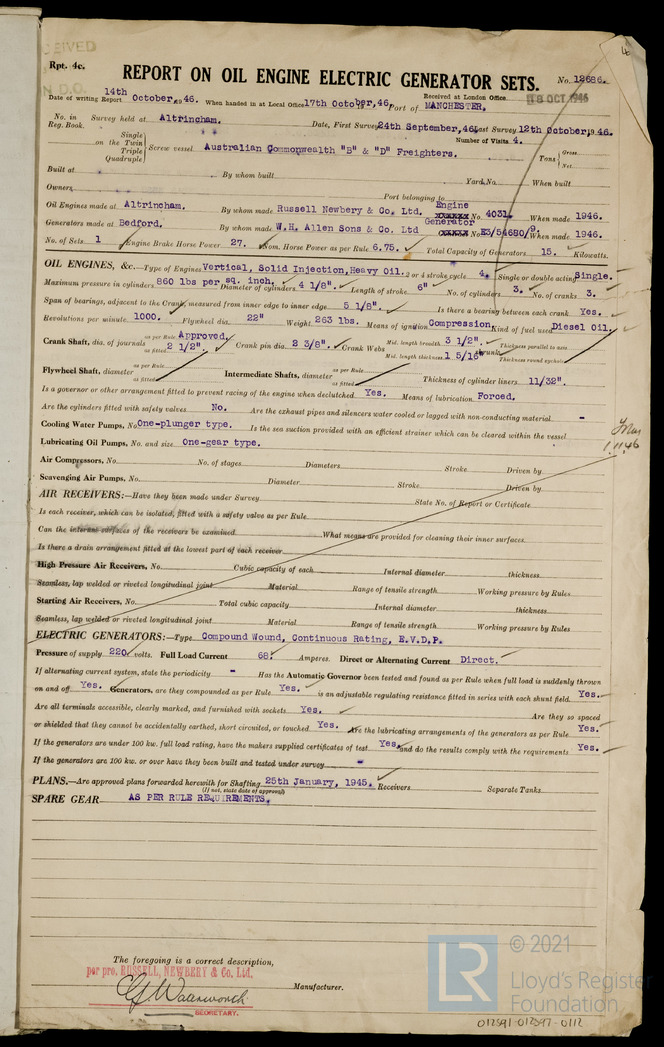 Rpt. 4c.
REPORT ON OIL ENGINE ELECTRIC GENERATOR SETS.
No. 12686.
Received at London Office 18 OCT 1946
Date of writing Report 14th October, 1946. When handed in at Local Office 17th October, 46. Port of MANCHESTER.
No. in Reg. Book. Survey held at Altrincham. Date, First Survey 24th September, 46 Last Survey 12th October, 1946.
Number of Visits 4.
Single on the Twin Triple Quadruple Screw vessel Australian Commonwealth "B" & "D" Freighters. Tons Gross Net
Built at By whom built Yard No. When built
Owners Port belonging to
Oil Engines made at Altrincham. By whom made Russell Newbery & Co. Ltd. Engine No. 4031. When made 1946.
Generators made at Bedford. By whom made W.H. Allen Sons & Co. Ltd Generator No. E3/54680/9. When made 1946.
No. of Sets 1 Engine Brake Horse Power 27. Nom. Horse Power as per Rule 6.75. Total Capacity of Generators 15. Kilowatts.
OIL ENGINES, &c.—Type of Engines Vertical, Solid Injection, Heavy Oil. 2 or 4 stroke cycle 4. Single or double acting Single.
Maximum pressure in cylinders 860 lbs per sq. inch. Diameter of cylinders 4 1/8". Length of stroke 6" No. of cylinders 3. No. of cranks 3.
Span of bearings, adjacent to the Crank, measured from inner edge to inner edge 5 1/8". Is there a bearing between each crank Yes.
Revolutions per minute 1000. Flywheel dia. 22" Weight 263 lbs. Means of ignition Compression Kind of fuel used Diesel Oil.
Crank Shaft, dia. of journals as per Rule Approved. as fitted 2 1/2". Crank pin dia. 2 3/8". Crank Webs Mid. length breadth 3 1/2". Mid. length thickness 1 5/16" shrunk Thickness parallel to axis Thickness round eyehole
Flywheel Shaft, diameter as per Rule as fitted Intermediate Shafts, diameter as per Rule as fitted Thickness of cylinder liners 11/32".
Is a governor or other arrangement fitted to prevent racing of the engine when declutched Yes. Means of lubrication Forced.
Are the cylinders fitted with safety valves No. Are the exhaust pipes and silencers water cooled or lagged with non-conducting material -
Cooling Water Pumps, No. One-plunger type. Is the sea suction provided with an efficient strainer which can be cleared within the vessel
Lubricating Oil Pumps, No. and size One-gear type.
1.11.46
Air Compressors, No. No. of stages Diameters Stroke Driven by
Scavenging Air Pumps, No. Diameter Stroke Driven by
AIR RECEIVERS:—Have they been made under Survey State No. of Report or Certificate
Is each receiver, which can be isolated, fitted with a safety valve as per Rule
Can the internal surfaces of the receivers be examined What means are provided for cleaning their inner surfaces
Is there a drain arrangement fitted at the lowest part of each receiver
High Pressure Air Receivers, No. Cubic capacity of each Internal diameter thickness
Seamless, lap welded or riveted longitudinal joint Material Range of tensile strength Working pressure by Rules
Starting Air Receivers, No. Total cubic capacity Internal diameter thickness
Seamless, lap welded or riveted longitudinal joint Material Range of tensile strength Working pressure by Rules
ELECTRIC GENERATORS:—Type Compound Wound, Continuous Rating, E.V.D.P.
Pressure of supply 220 volts. Full Load Current 68. Amperes. Direct or Alternating Current Direct.
If alternating current system, state the periodicity - Has the Automatic Governor been tested and found as per Rule when full load is suddenly thrown
on and off Yes. Generators, are they compounded as per Rule Yes. is an adjustable regulating resistance fitted in series with each shunt field Yes.
Are all terminals accessible, clearly marked, and furnished with sockets Yes. Are they so spaced
or shielded that they cannot be accidentally earthed, short circuited, or touched Yes. Are the lubricating arrangements of the generators as per Rule Yes.
If the generators are under 100 kw. full load rating, have the makers supplied certificates of test Yes. and do the results comply with the requirements Yes.
If the generators are 100 kw. or over have they been built and tested under survey -
PLANS.—Are approved plans forwarded herewith for Shafting 25th January, 1945. Receivers Separate Tanks
(If not, state date of approval)
SPARE GEAR AS PER RULE REQUIREMENTS.
The foregoing is a correct description,
per pro. RUSSELL, NEWBERY & Co. Ltd.
Manufacturer.
SECRETARY.
LR © 2021
Lloyd's Register
Foundation
012591-012597-0112